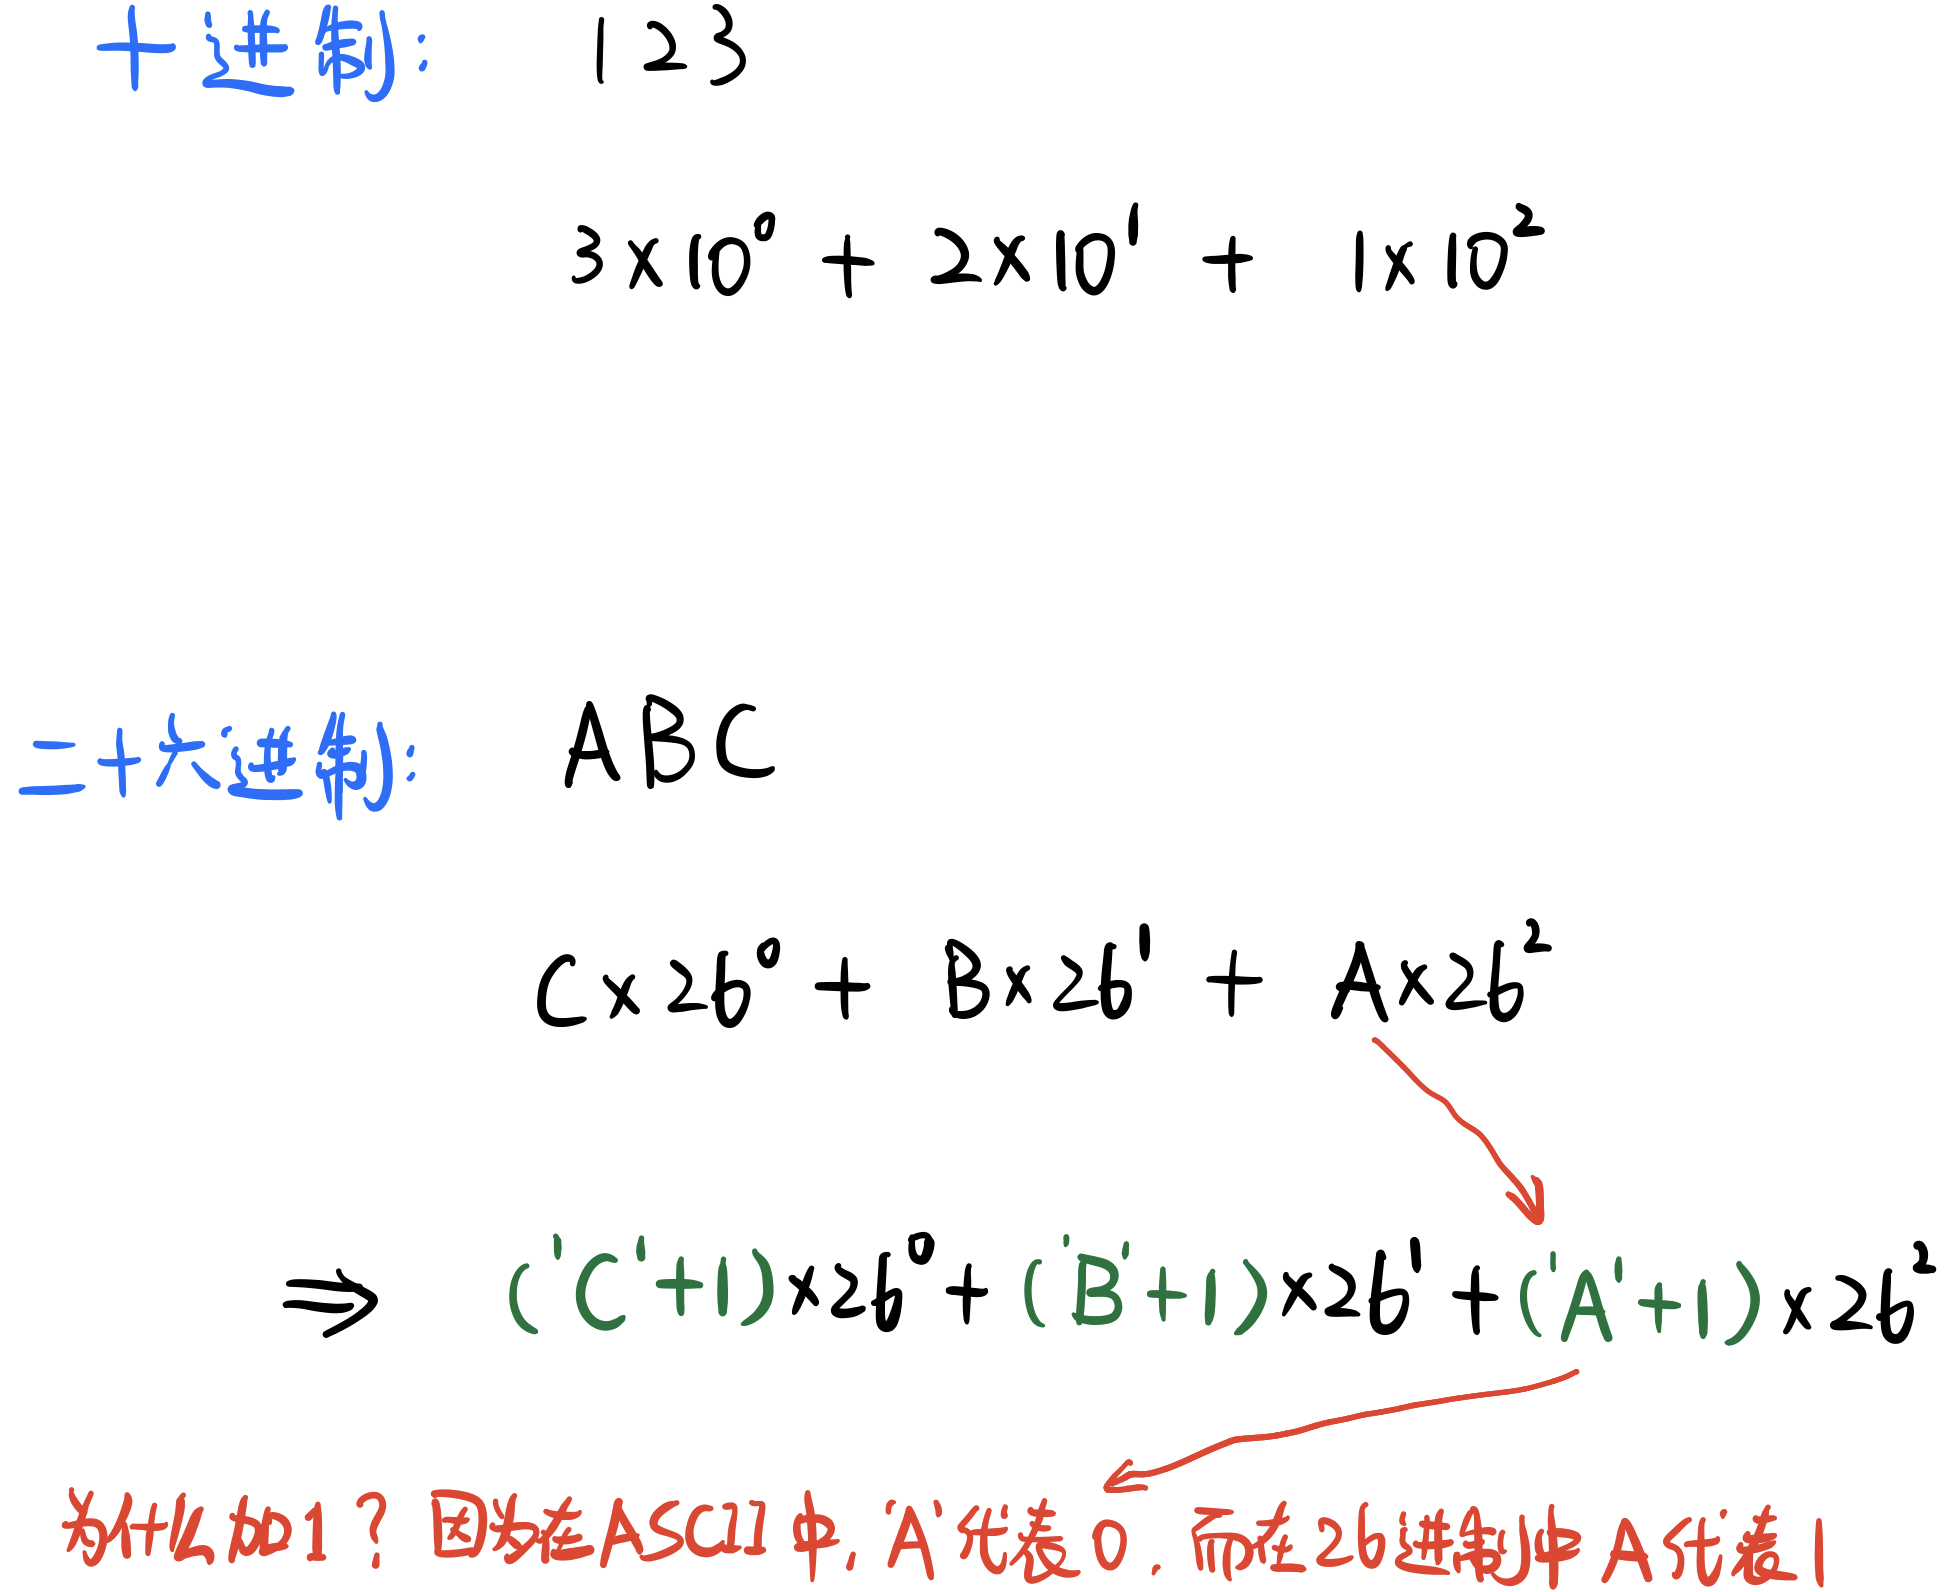 十进制: 123
3×10⁰ + 2×10¹ + 1×10²
二十六进制: ABC
C×26⁰ + B×26¹ + A×26²
⇒ ('C'+1)×26⁰+('B'+1)×26¹+('A'+1)×26²
为什么加1? 因为在ASCII中,'A'代表0.而在26进制中A代表1